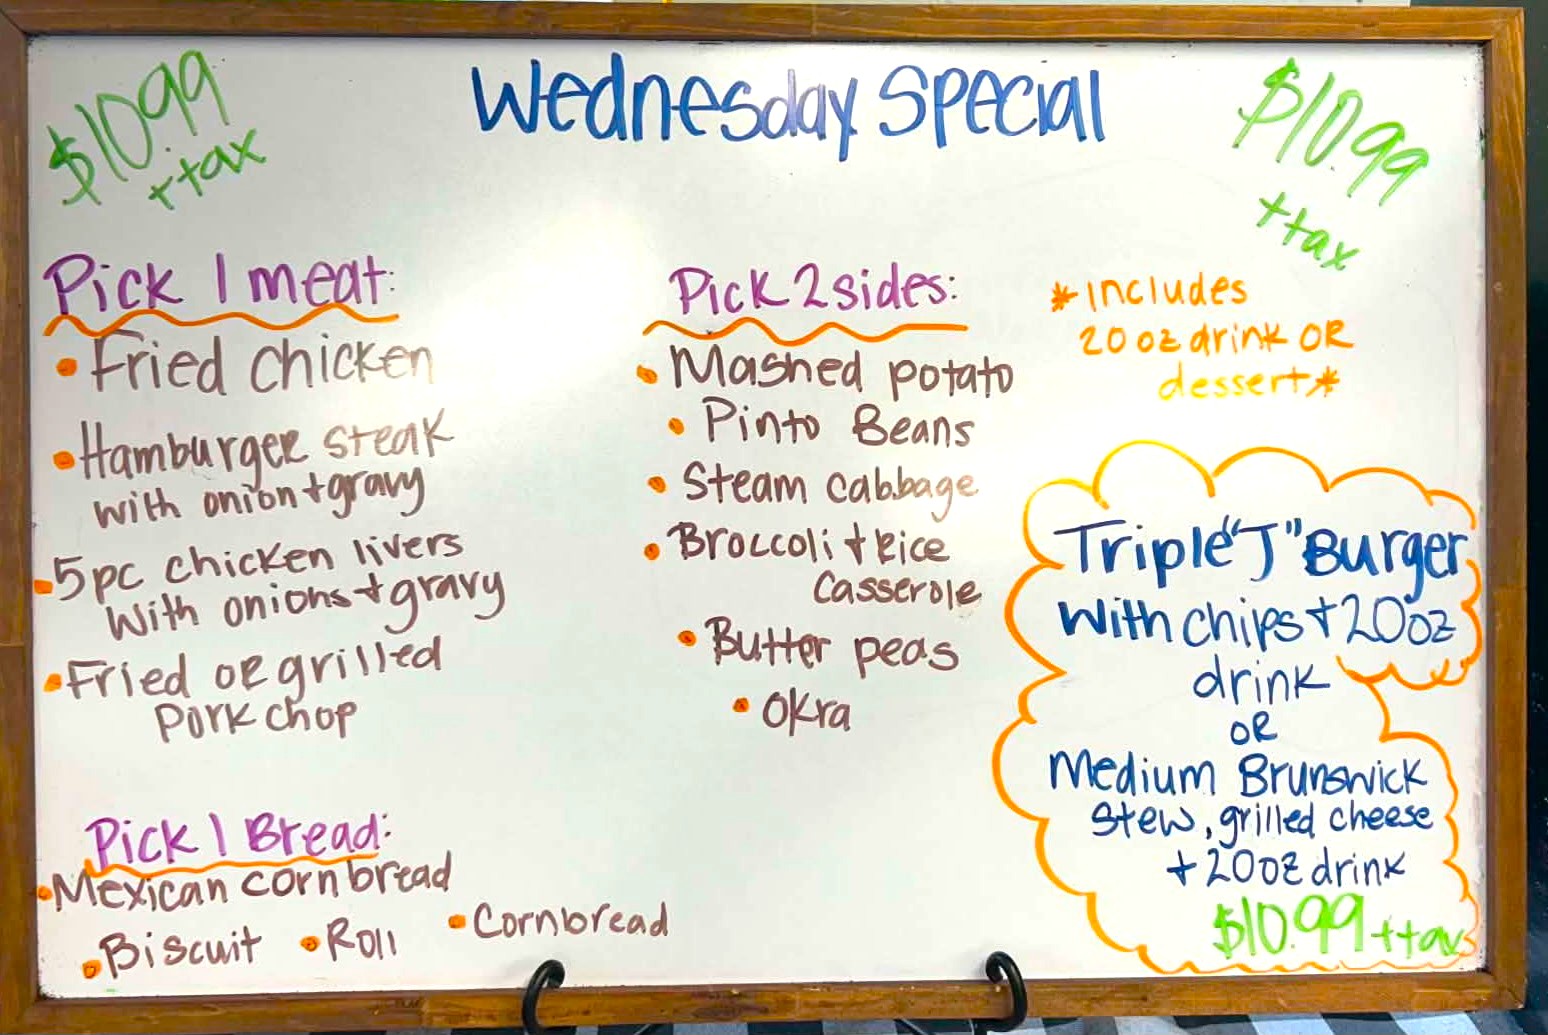 $10.99
+ tax
Wednesday Special
$10.99
+ tax
Pick 1 meat:
• Fried chicken
• Hamburger steak
with onion + gravy
• 5pc chicken livers
with onions + gravy
• Fried or grilled
Pork chop
Pick 2 sides:
• Mashed potato
• Pinto Beans
• Steam cabbage
• Broccoli + Rice
Casserole
• Butter peas
• Okra
*Includes
20 oz drink OR
dessert*
Pick 1 Bread:
• Mexican cornbread
• Biscuit • Roll • Cornbread
Triple "J" Burger
with chips + 20oz
drink
OR
Medium Brunswick
Stew, grilled cheese
+ 20oz drink
$10.99 + tax